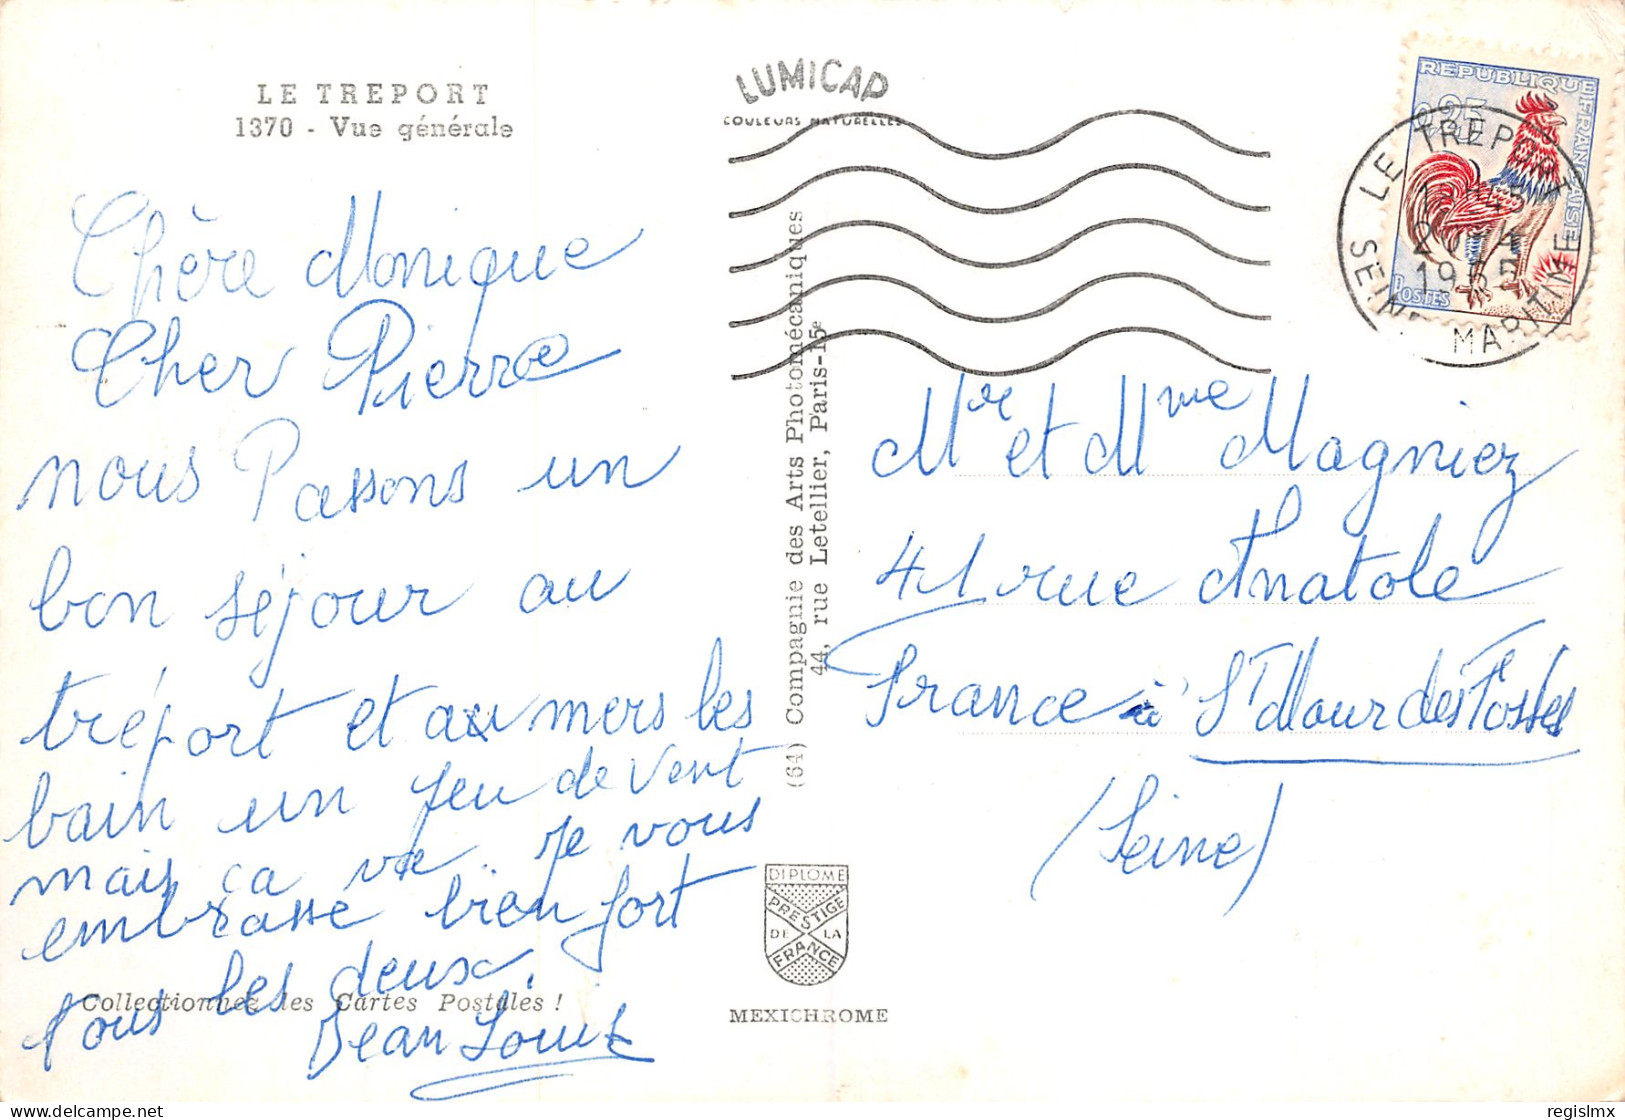 LE TREPORT
1370 - Vue générale
Chère Monique
Cher Pierre
nous Passons un
bon séjour au
tréport et au mers les
bain un peu de vent
mais ça va. Je vous
embrasse bien fort
tous les deux.
Jean Louis
Collectionnez les Cartes Postales !
LUMICAP
COULEURS NATURELLES
(64) Compagnie des Arts Photomécaniques
44, rue Letellier, Paris-15e
DIPLOME
PRESTIGE
DE LA
FRANCE
MEXICHROME
REPUBLIQUE FRANÇAISE
0,25
POSTES
LE TREPORT
SEINE MARITIME
Mr et Mme Magniez
41 rue Anatole
France à St Maur des Fossés
(Seine)
regislmx